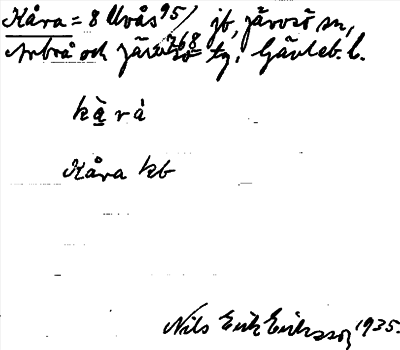 Kåra = 8 Uvås 95/ jb, Järvsö sn,
Arbrå och Järvsö 768 tg. Gävleb. l.
kä̀rå
Kåra kb
Nils Erik Eriksson 1935.